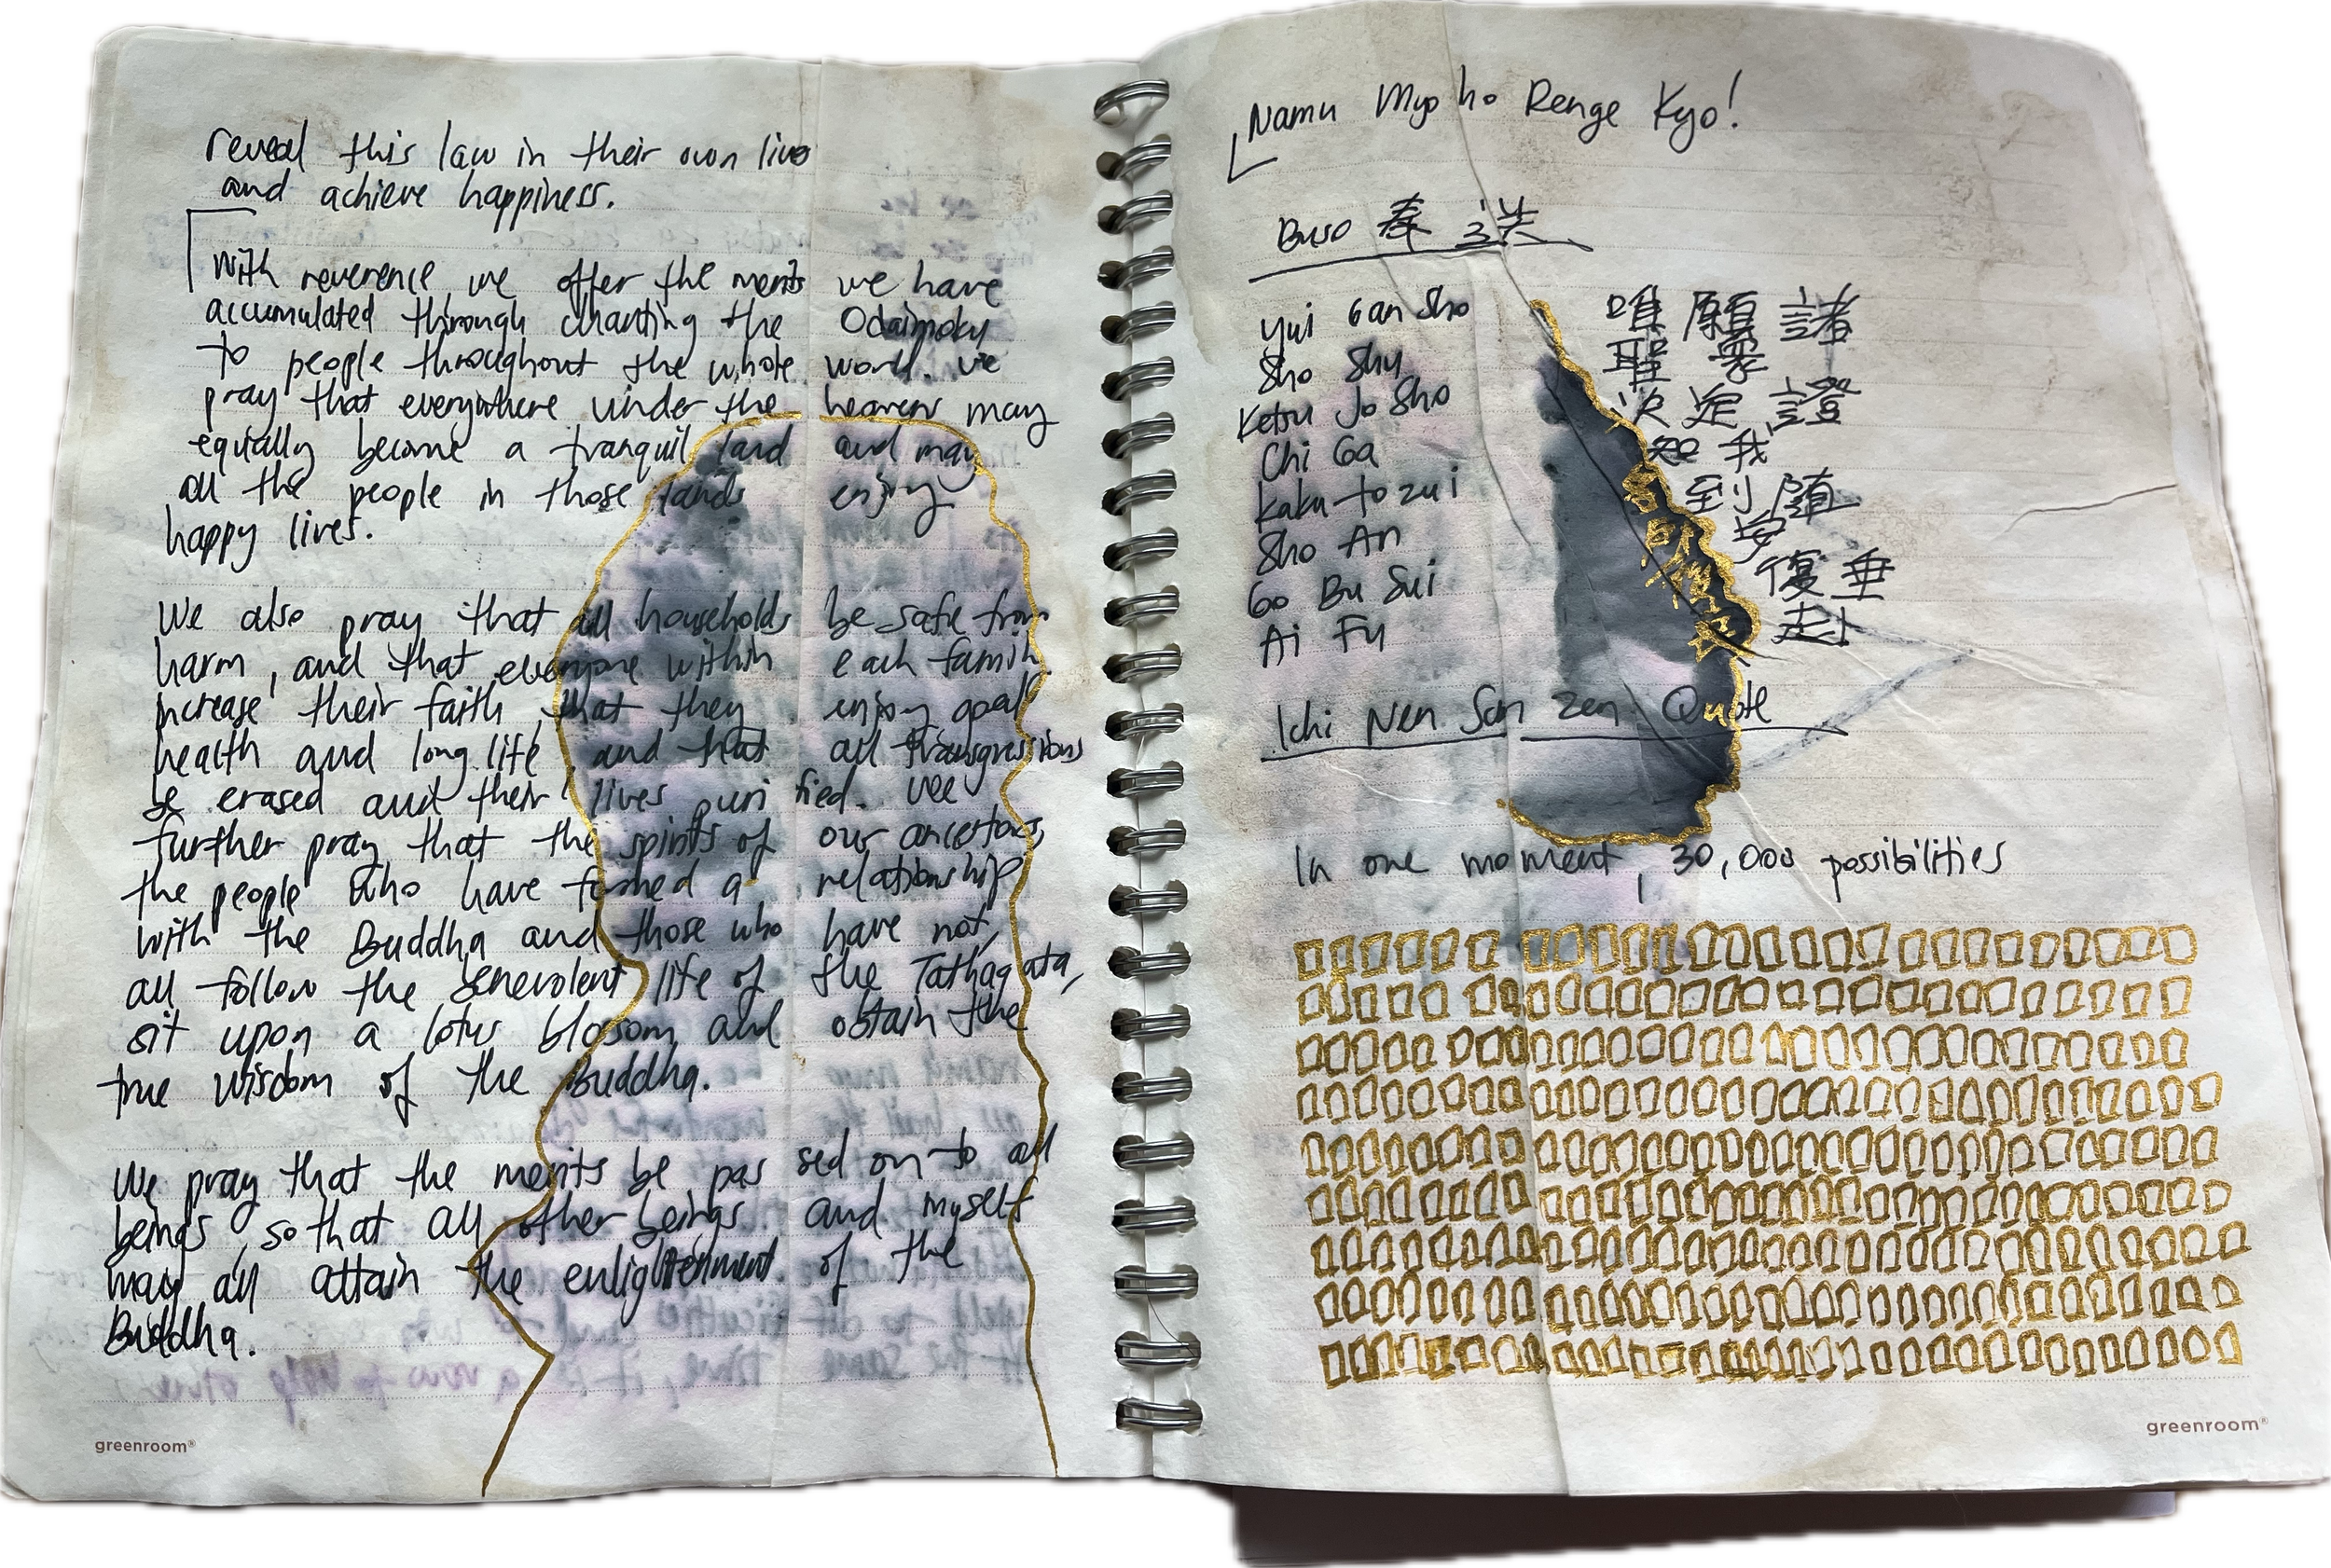 reveal this law in their own lives
and achieve happiness.
With reverence we offer the merits we have
accumulated through chanting the Odaimoku
to people throughout the whole world. We
pray that everywhere under the heavens may
equally become a tranquil land and may
all the people in those lands enjoy
happy lives.
We also pray that all households be safe from
harm, and that everyone within each family
increase their faith, that they enjoy good
health and long life, and that all transgressions
be erased and their lives purified. We
further pray that the spirits of our ancestors,
the people who have formed a relationship
with the Buddha and those who have not,
all follow the benevolent life of the Tathagata,
sit upon a lotus blossom and obtain the
true wisdom of the Buddha.
We pray that the merits be passed on to all
beings, so that all other beings and myself
may all attain the enlightenment of the
Buddha.
greenroom®
Namu Myo ho Renge Kyo!
Buso 奉送
Yui Gan Sho 唯願諸
Sho Shu 聖衆
Ketsu Jo Sho 決定證
Chi Ga 知我
Kaku to zui 到隨
Sho An 安
Go Bu Sui 復垂
Ai Fu
Ichi Nen San Zen Quote
In one moment, 30,000 possibilities
greenroom®